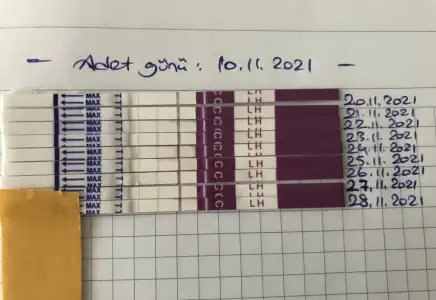 — Adet günü : 10.11.2021 —
MAX C LH 20.11.2021
MAX C LH 21.11.2021
MAX C LH 22.11.2021
MAX C LH 23.11.2021
MAX C LH 24.11.2021
MAX C LH 25.11.2021
MAX C LH 26.11.2021
MAX C LH 27.11.2021
MAX C LH 28.11.2021